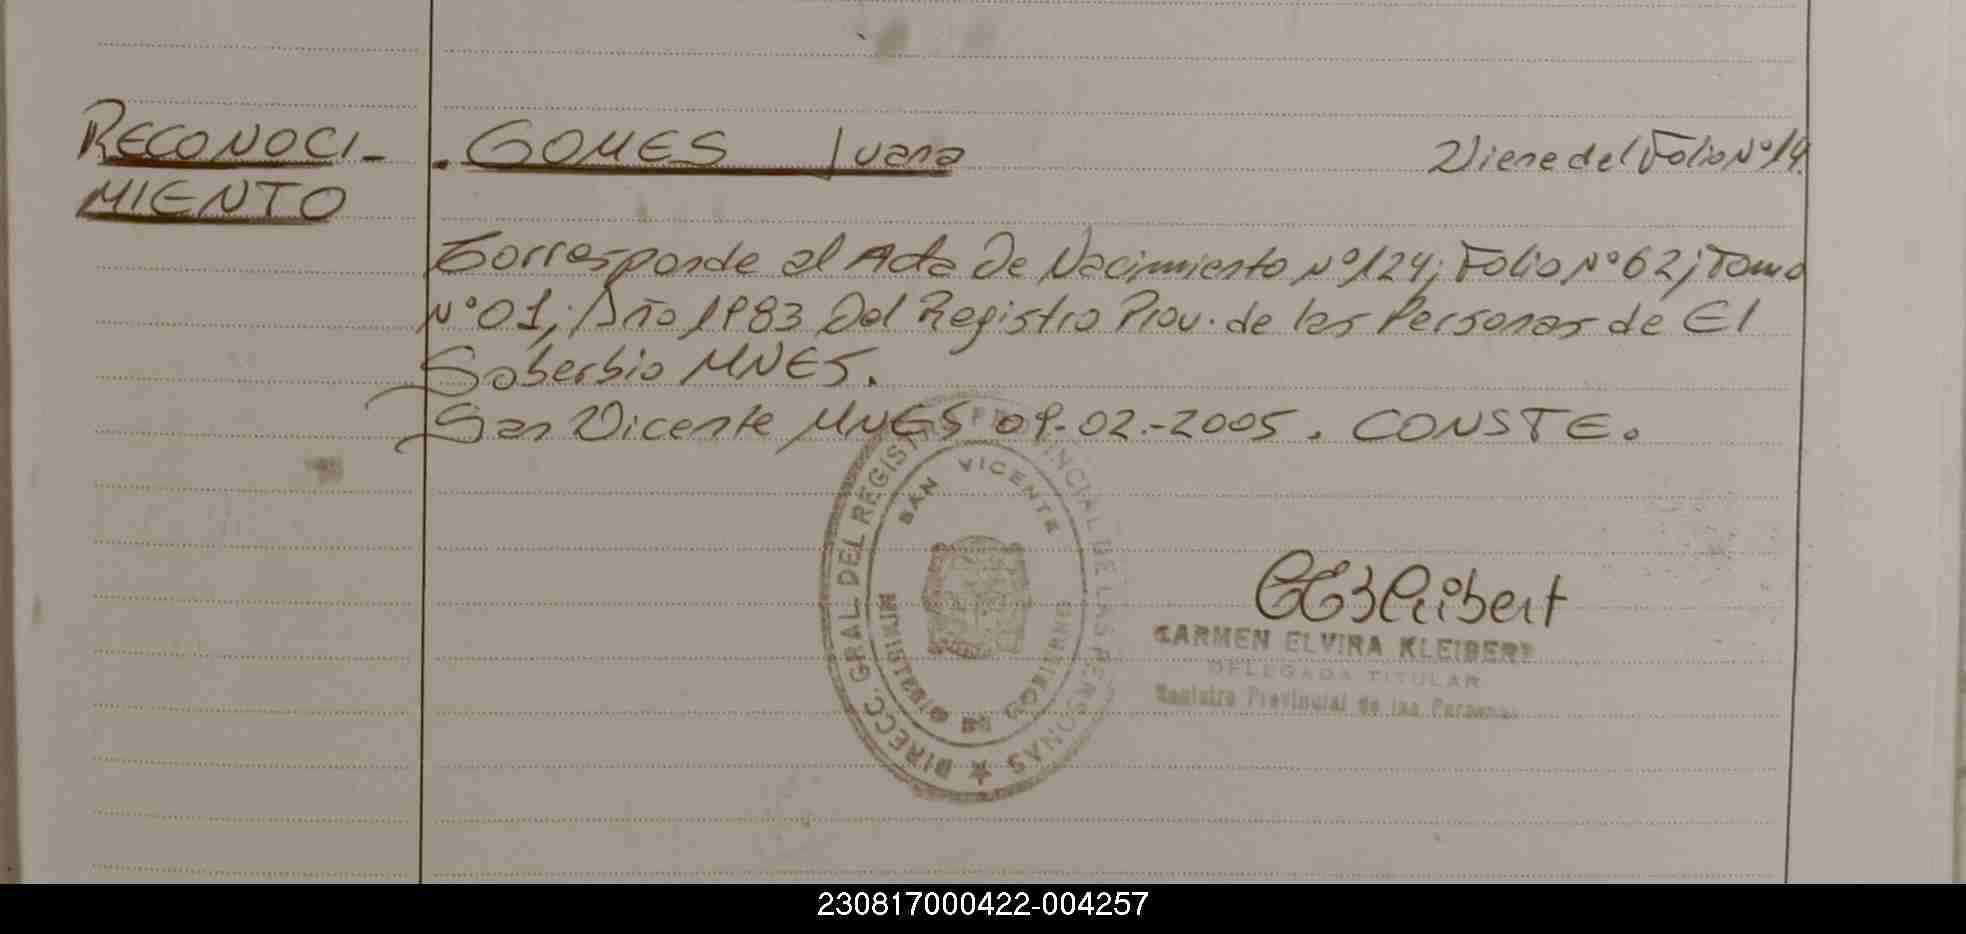 RECONOCI-
MIENTO
. GOMES Juana
Viene del Folio Nº 14.
Corresponde al Acta De Nacimiento Nº 124; Folio Nº 62; Tomo
Nº 01; Año 1983 Del Registro Prov. de las Personas de El
Soberbio MNES.
San Vicente MNES 09-02-2005. CONSTE.
DIRECC. GRAL. DEL REGISTRO PROVINCIAL DE LAS PERSONAS
SAN VICENTE
MINISTERIO DE GOBIERNO
CEKleibert
CARMEN ELVIRA KLEIBERT
DELEGADA TITULAR
Registro Provincial de las Personas
230817000422-004257